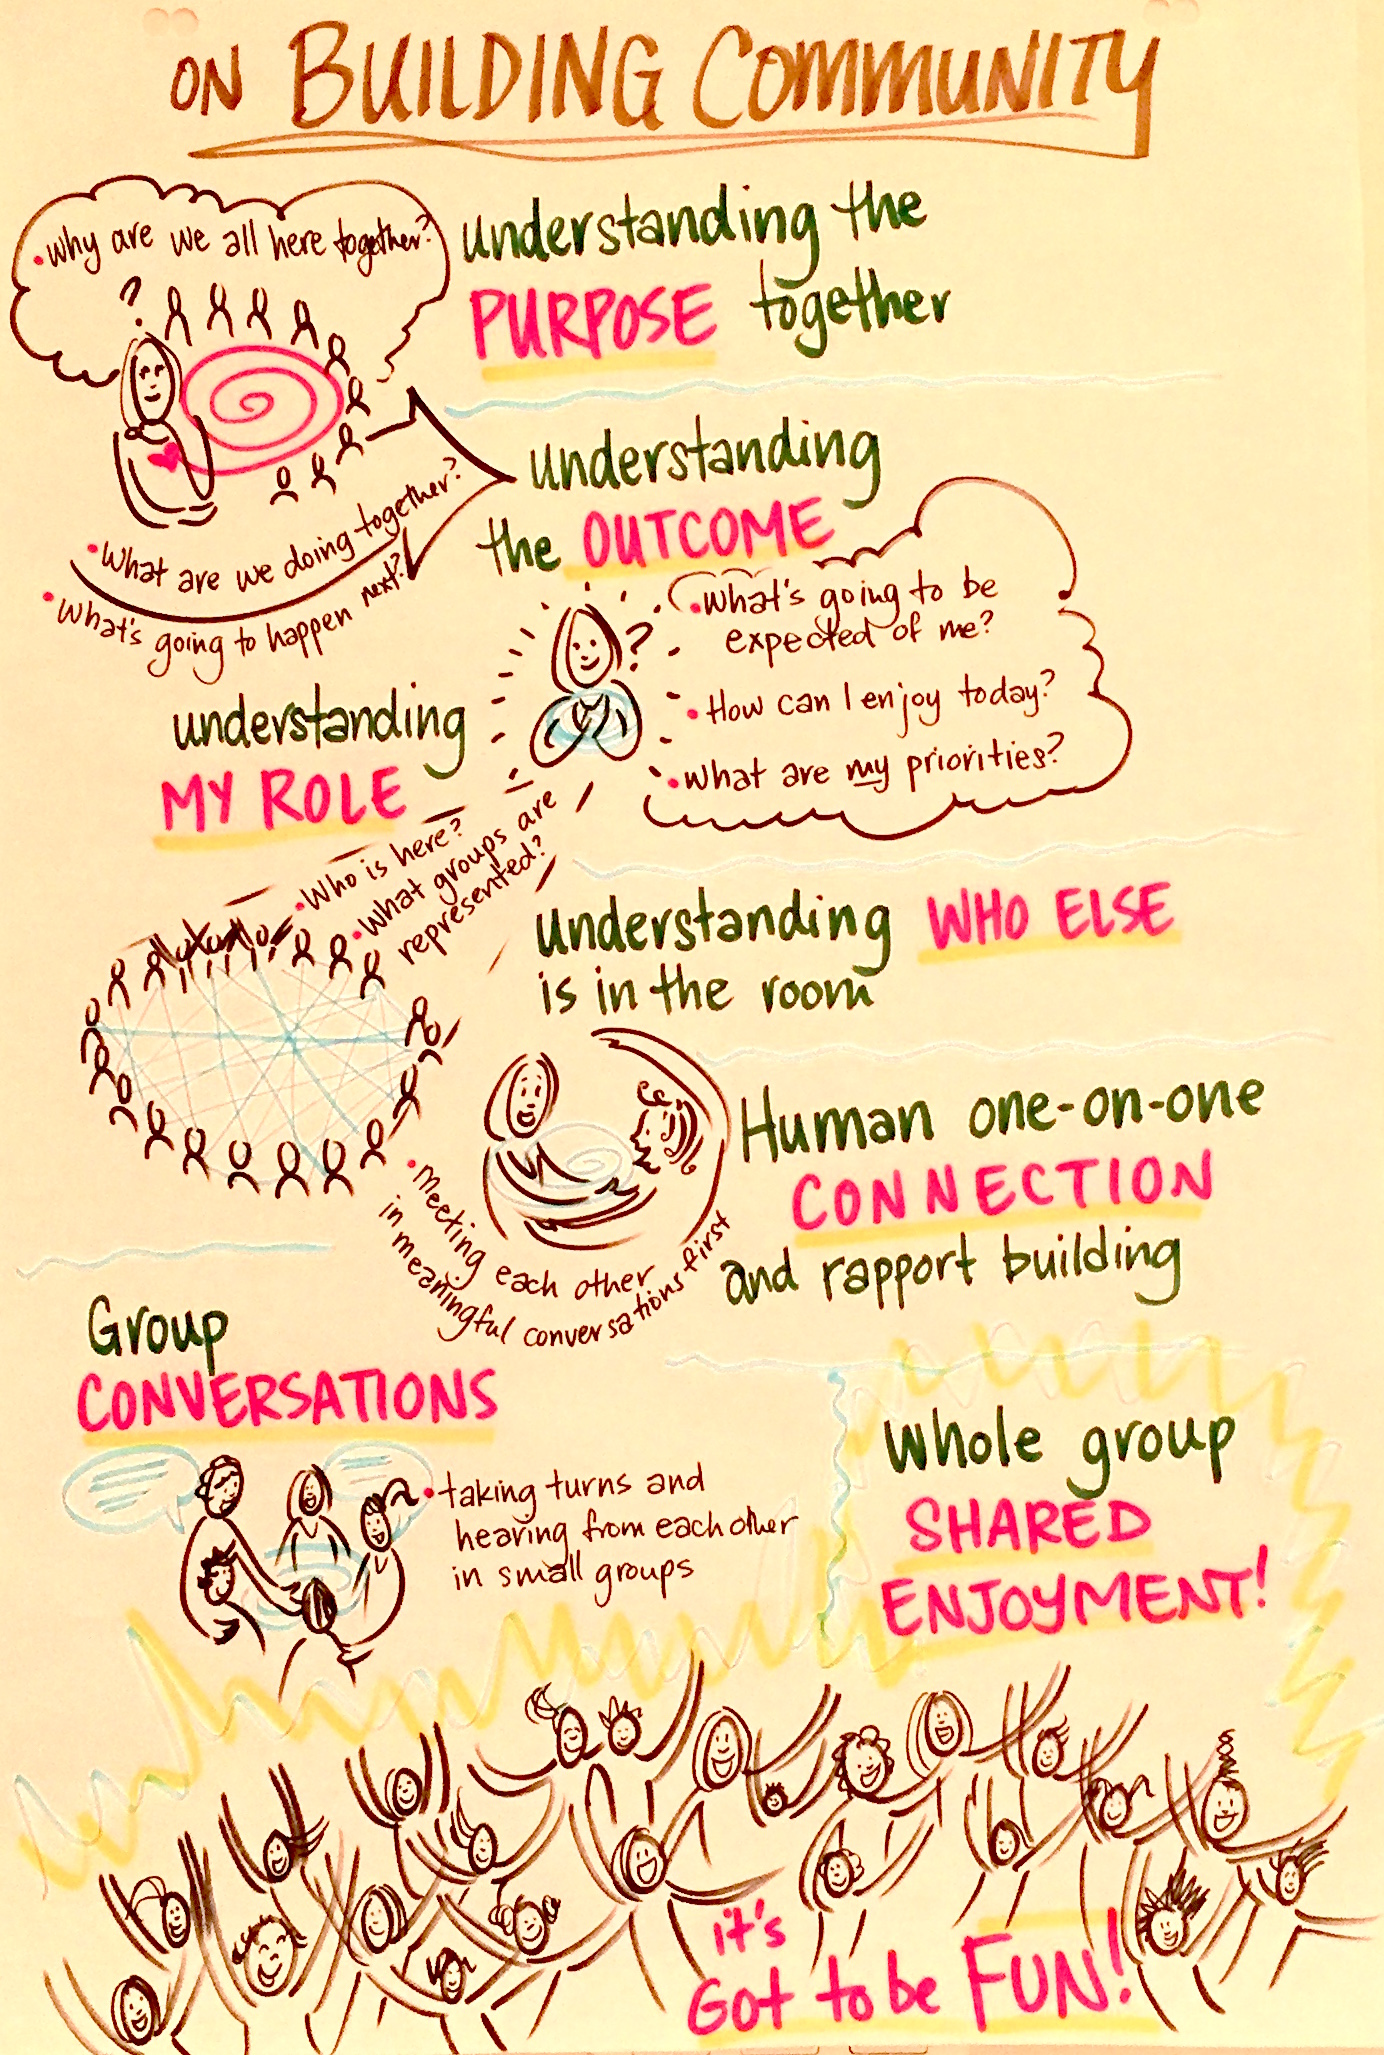 ON BUILDING COMMUNITY
• Why are we all here together?
?
understanding the
PURPOSE together
• What are we doing together?
• What's going to happen next?
understanding
the OUTCOME
?
• What's going to be
expected of me?
• How can I enjoy today?
• What are my priorities?
understanding
MY ROLE
• Who is here?
• What groups are
represented?
Understanding WHO ELSE
is in the room
Human one-on-one
CONNECTION
and rapport building
• Meeting each other
in meaningful conversations first
Group
CONVERSATIONS
• taking turns and
hearing from each other
in small groups
Whole group
SHARED
ENJOYMENT!
it's
GoT to be FUN!